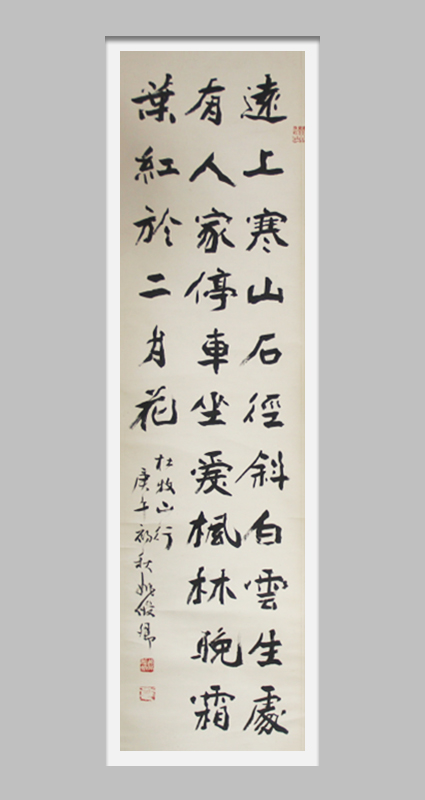 遠上寒山石徑斜白雲生處
有人家停車坐愛楓林晚霜
葉紅於二月花
杜牧山行
庚午初秋姚俊卿